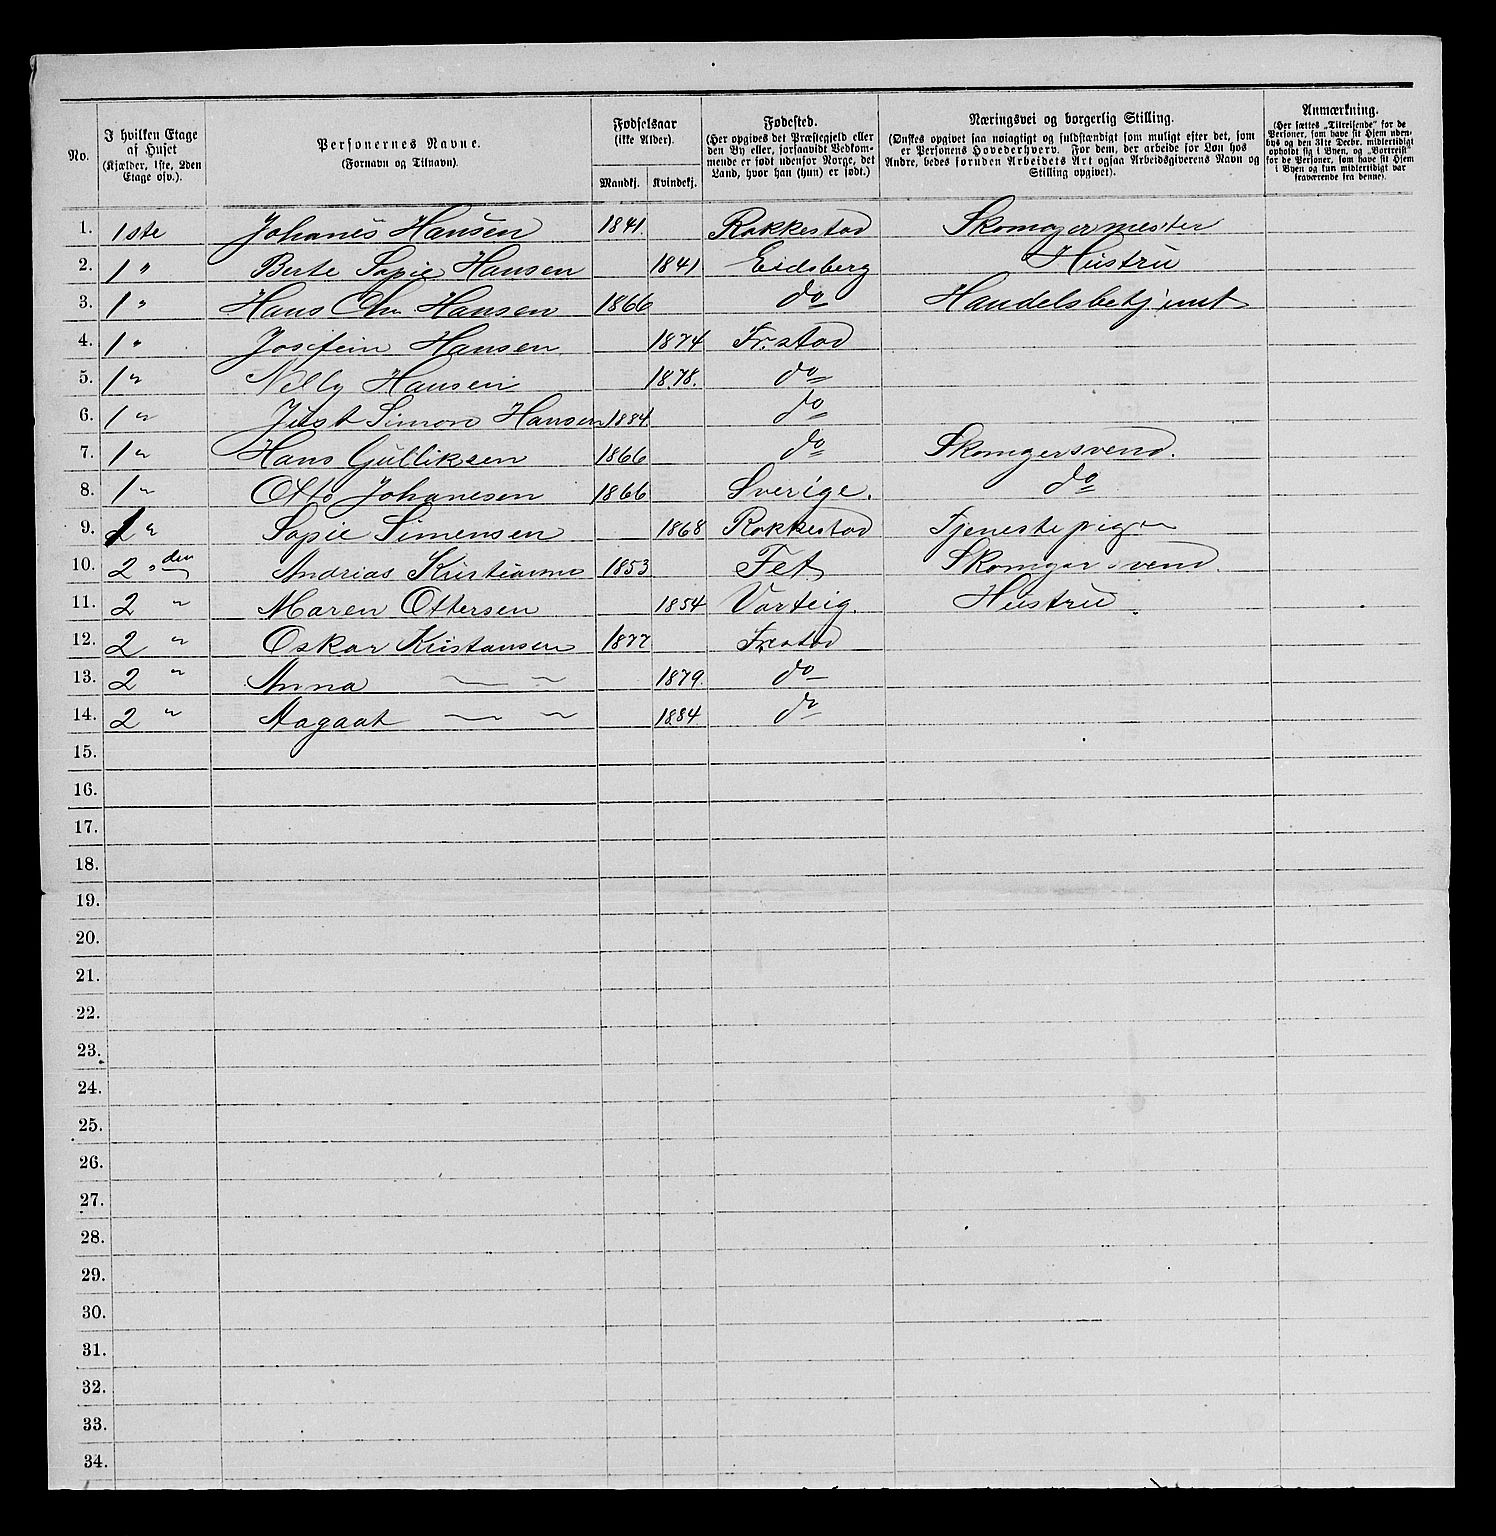 No.
I hvilken Etage af Huset (Kjælder, 1ste, 2den Etage osv.).
Personernes Navne. (Fornavn og Tilnavn).
Fødselsaar (ikke Alder). Mandkj. Kvindekj.
Fødested. (Her opgives det Præstegjeld eller den By eller, forsaavidt Vedkommende er født udenfor Norge, det Land, hvor han (hun) er født.)
Næringsvei og borgerlig Stilling. (Ønskes opgivet saa nøiagtigt og fuldstændigt som muligt efter det, som er Personens Hovederhverv. For dem, der arbeide for Løn hos Andre, bedes foruden Arbeidets Art ogsaa Arbeidsgiverens Navn og Stilling opgivet).
Anmærkning. (Her sættes „Tilreisende“ for de Personer, som have sit Hjem udenbys og den 31te Decbr. midlertidigt opholdt sig i Byen, og „Bortreist“ for de Personer, som have sit Hjem i Byen og kun midlertidigt var fraværende fra denne).
1. 1ste Johanes Hansen 1841. Rakkestad Skomagermester
2. 1 " Berte Sopie Hansen 1841 Eidsberg Hustru
3. 1 " Hans Chr Hansen 1866 do Handelsbetjent
4. 1 " Josifein Hansen 1874 Fr.stad
5. 1 " Nelly Hansen 1878. do
6. 1 " Just Simon Hansen 1884. do
7. 1 " Hans Gulliksen 1866 do Skomgersvend.
8. 1 " Otto Johanesen 1866 Sverige. do
9. 1 " Sopie Simensen 1868 Rakkestad Tjenestepige
10. 2 den Andrias Kristiansen 1853 Fet Skomgar svend.
11. 2 " Maren Ottersen 1854 Varteig. Hustru
12. 2 " Oskar Kristansen 1877 Fr.stad
13. 2 " Anna — " 1879. do
14. 2 " Aagaat — " 1884 do
15.
16.
17.
18.
19.
20.
21.
22.
23.
24.
25.
26.
27.
28.
29.
30.
31.
32.
33.
34.